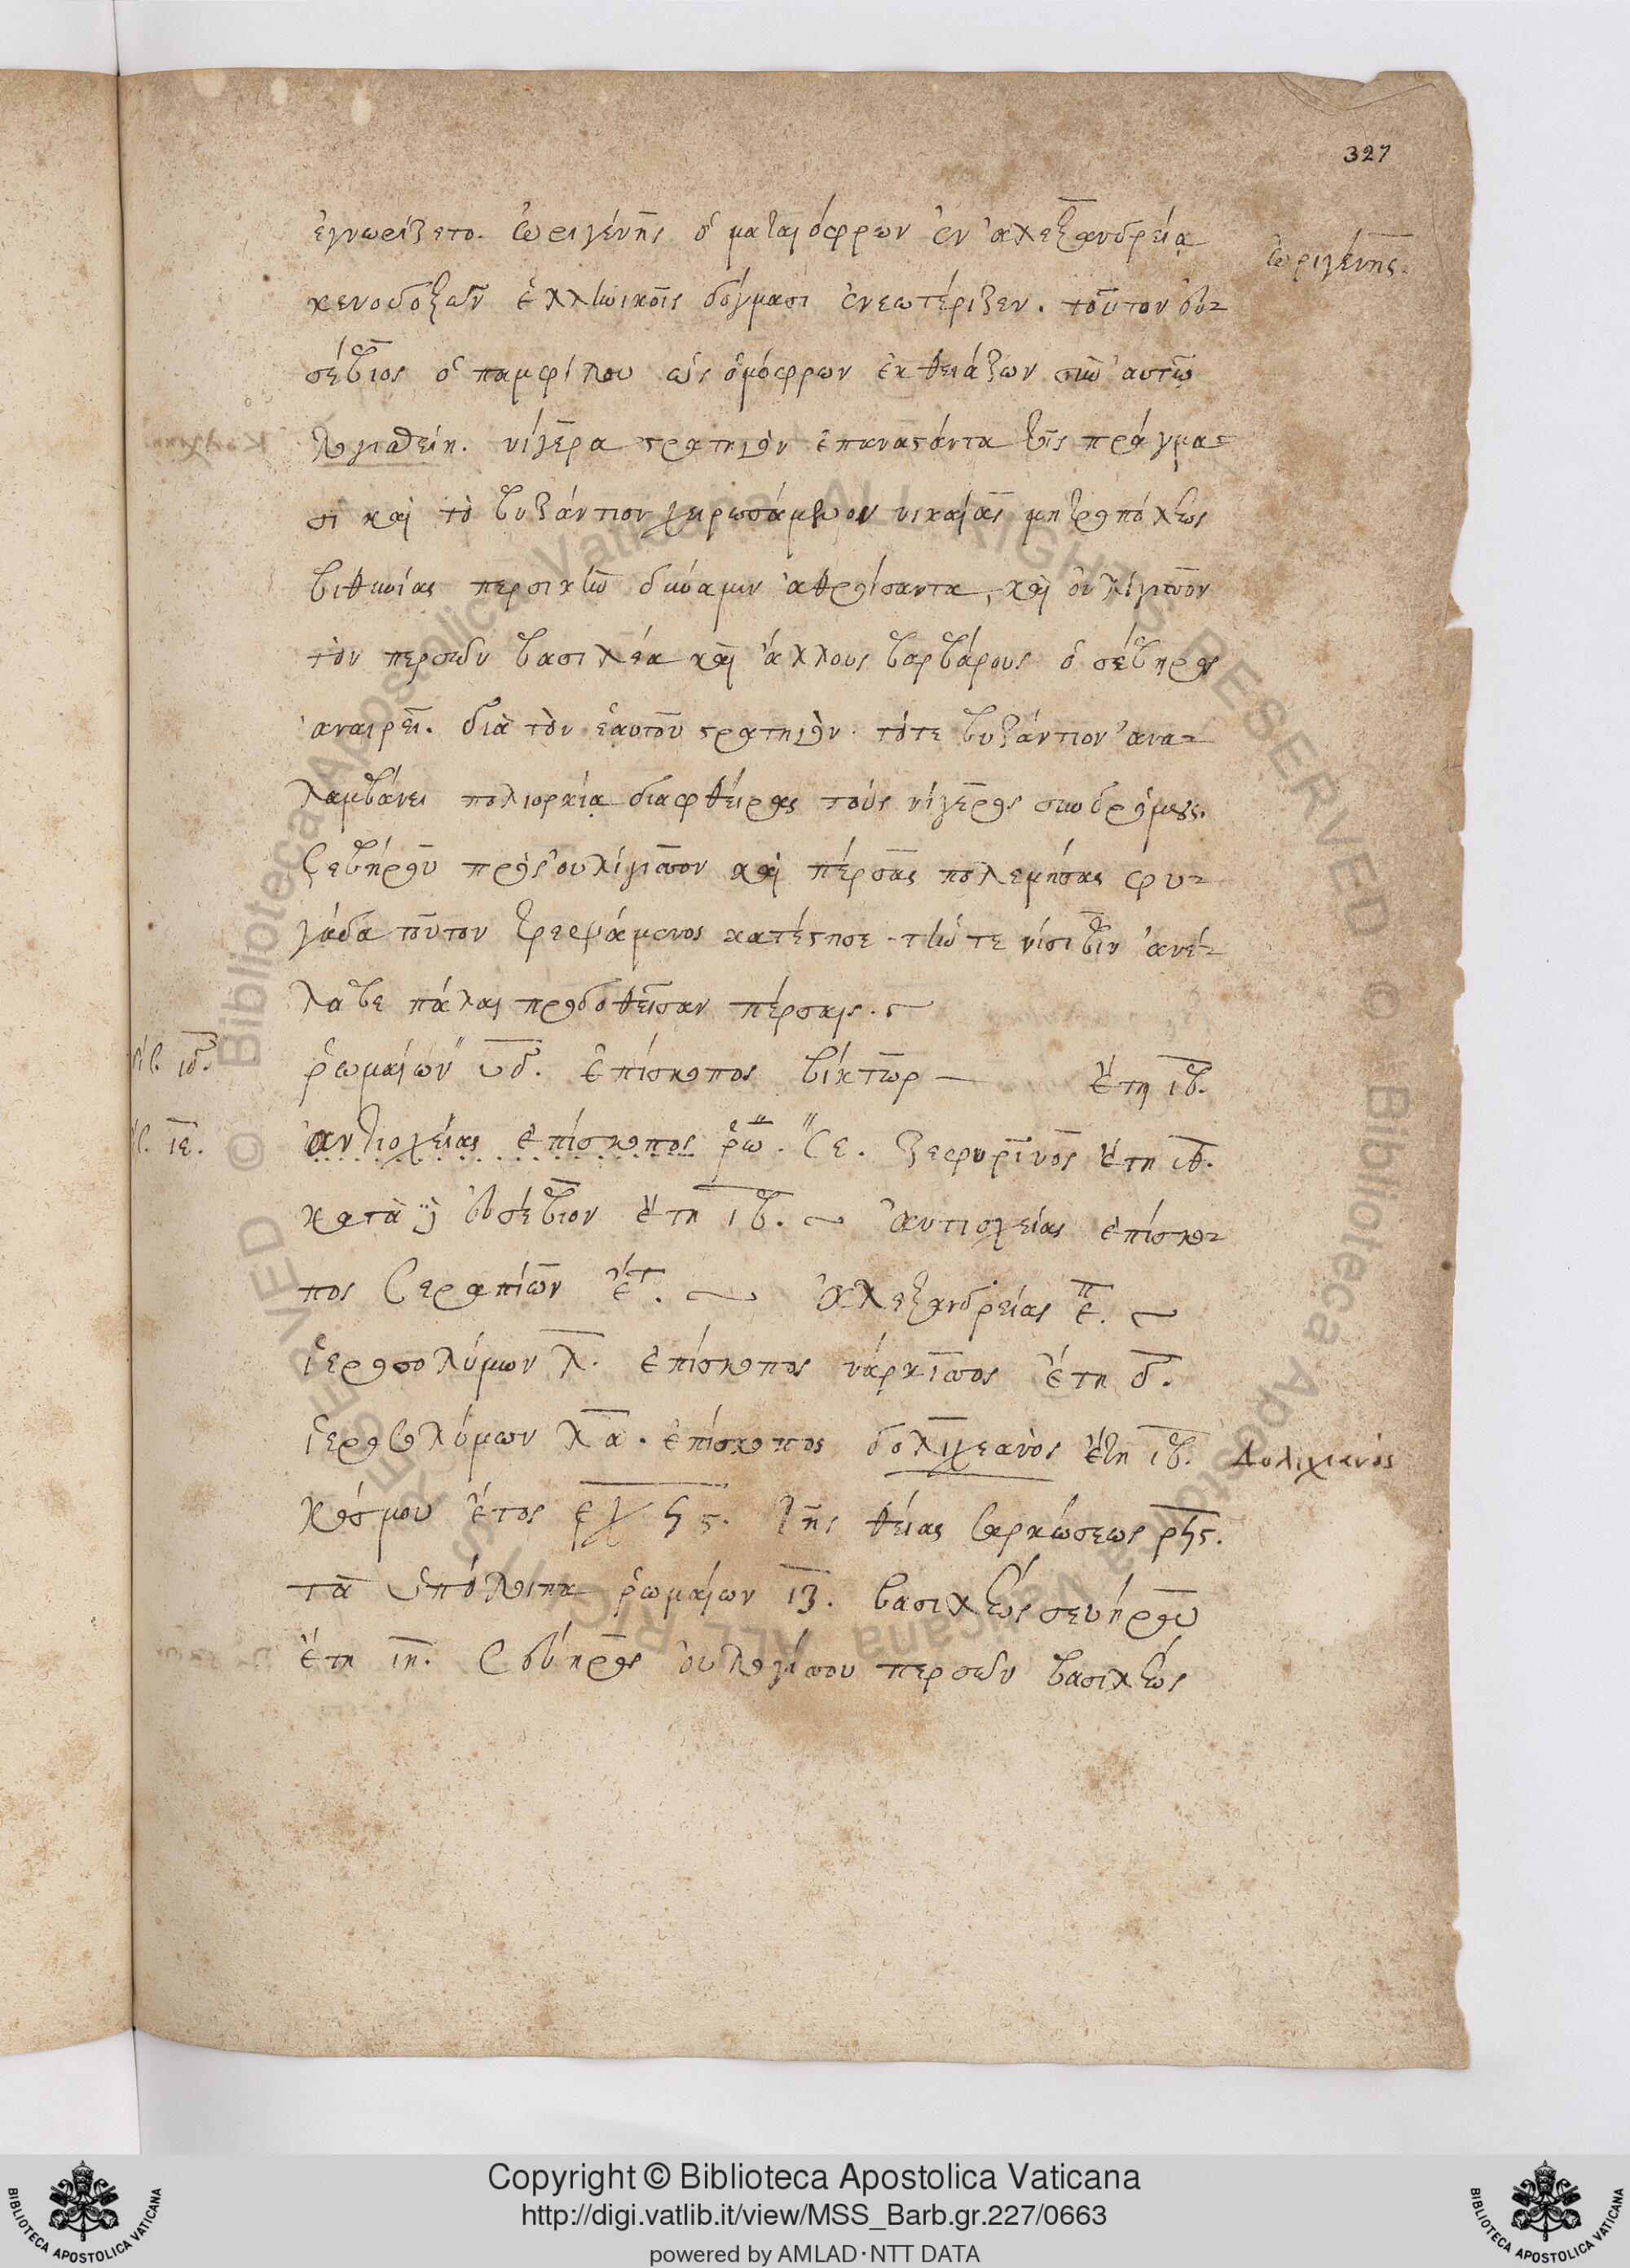 327
ἐγνωρίζετο. ὠριγένης ὁ ματαιόφρων ἐν ἀλεξανδρείᾳ
ὠριγένης.
κενοδοξῶν ἑλληνικοῖς δόγμασι ἐνεωτέριζεν. τοῦτον εὐ-
σέβιος ὁ παμφίλου ὡς ὁμόφρων ἐκθειάζων σὺν αὐτῷ
λογισθείη. νίγερα στρατηγὸν ἐπαναστάντα τοῖς πράγμα-
σι καὶ τὸ βυζάντιον χειρωσάμενον νικαίας μητροπόλεως
βιθυνίας περσικὴν δύναμιν ἀθροίσαντα, καὶ οὐλίγισον
τὸν περσῶν βασιλέα καὶ ἄλλους βαρβάρους ὁ σέβηρος
ἀναιρεῖ. διὰ τὸν ἑαυτοῦ στρατηγόν. τότε βυζάντιον ἀνα-
λαμβάνει πολιορκίᾳ διαφθείρας τοὺς νίγερος συνδρόμους.
Σεβήρου πρὸς οὐλίγισον καὶ πέρσας πολεμήσας φυ-
γάδα τοῦτον τρεψάμενος κατέστησε. τήν τε νίσιβιν ἀνέ-
λαβε πάλαι προδοθεῖσαν πέρσαις.
ιδ. ῥωμαίων ιδ. ἐπίσκοπος βίκτωρ — ἔτη ιβ.
ιε. ἀντιοχείας ἐπίσκοπος ῥω. ιε. ζεφυρῖνος ἔτη ιθ.
κατὰ δὲ εὐσέβιον ἔτη ιβ. ~ ἀντιοχείας ἐπίσκο-
πος Σεραπίων ~ ἀλεξανδρείας ~
ἱεροσολύμων λ. ἐπίσκοπος νάρκισσος ἔτη δ.
ἱεροσολύμων λα. ἐπίσκοπος δολιχεανὸς ἔτη ιβ.
Δολιχιανός
κόσμου ἔτος εχϟϛ. τῆς θείας σαρκώσεως ρϟϛ.
τὰ ὑπόλοιπα ῥωμαίων ιζ. βασιλέως σευήρου
ἔτη ιη. Σεύηρος οὐλογίσου περσῶν βασιλέως
Copyright © Biblioteca Apostolica Vaticana
http://digi.vatlib.it/view/MSS_Barb.gr.227/0663
powered by AMLAD·NTT DATA
BIBLIOTECA APOSTOLICA VATICANA
BIBLIOTECA APOSTOLICA VATICANA